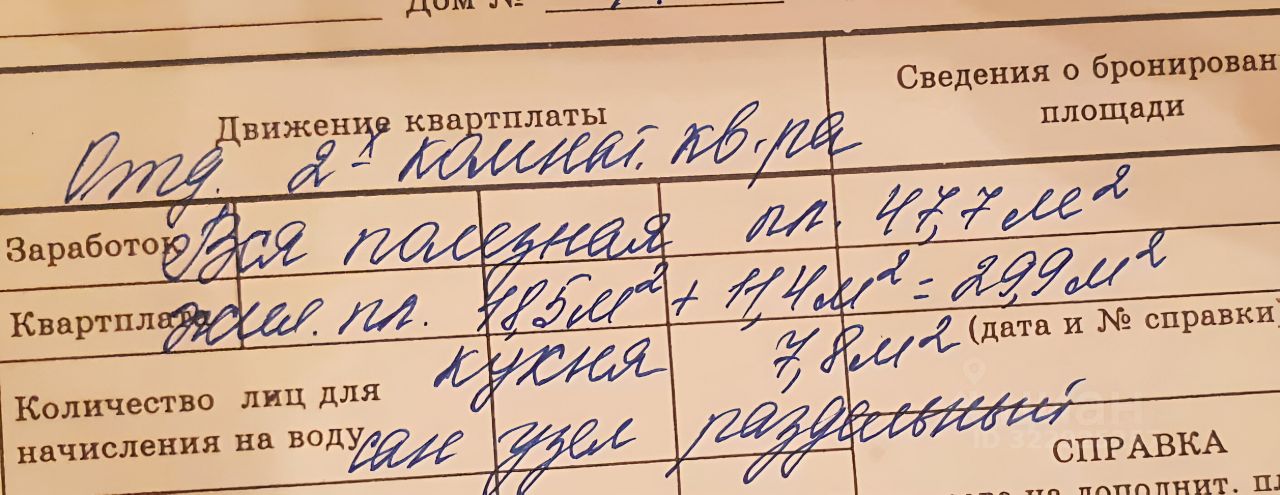 Дом №
Движение квартплаты
Сведения о бронирован
площади
Отд. 2-х комнат. кв-ра
Заработок
Вся полезная пл. 47,7 м²
Квартплата
жил. пл. 18,5 м² + 11,4 м² = 29,9 м²
(дата и № справки)
кухня 7,8 м²
Количество лиц для
начисления на воду
сан узел раздельный
СПРАВКА
на дополнит. пл